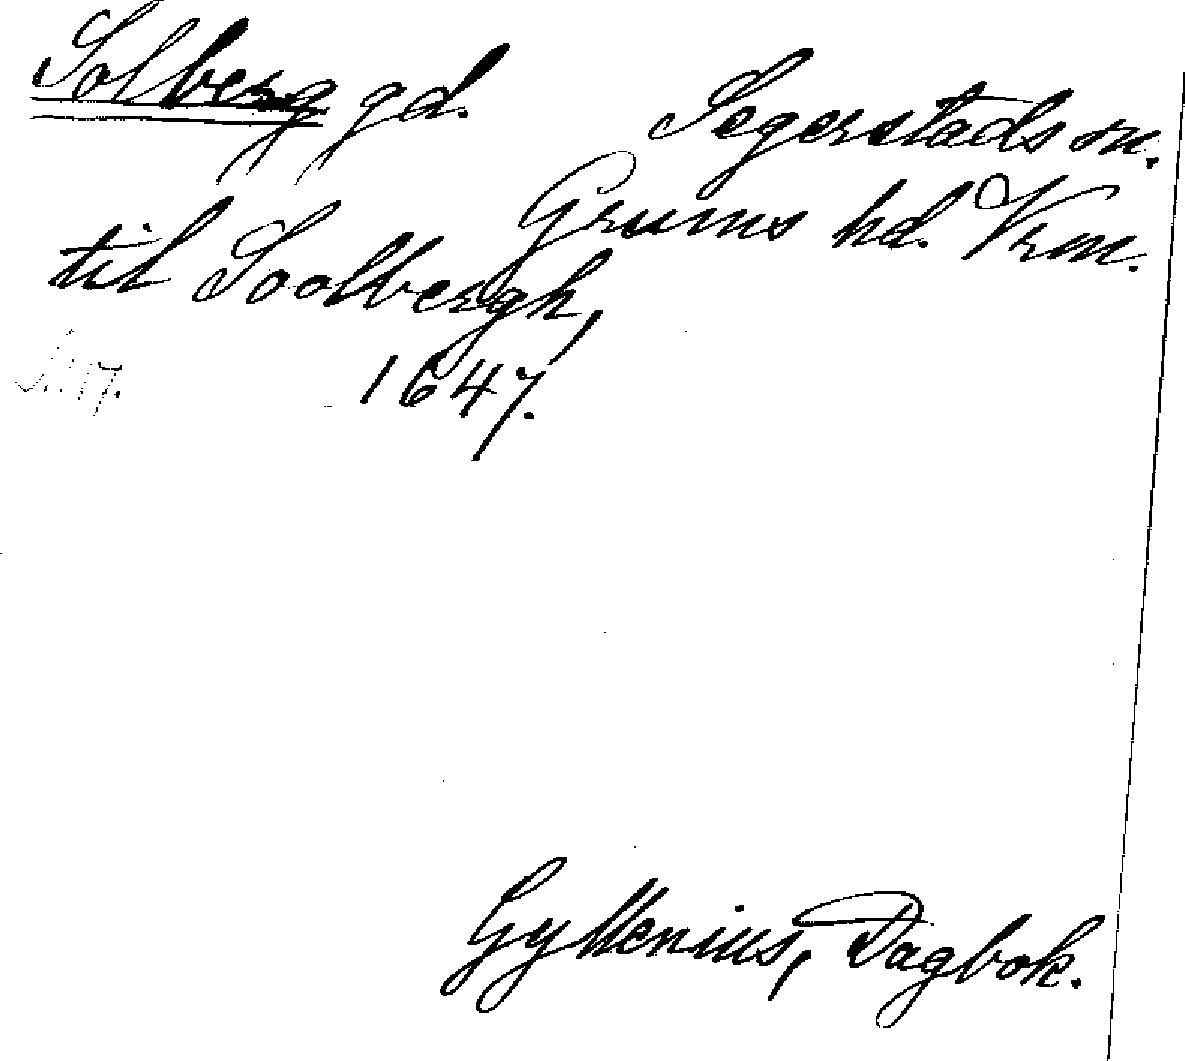 Solberg gd.
Segerstads sn.
Grums hd. Vrm.
til Soolbergh,
1647.
Gyllenius, Dagbok.